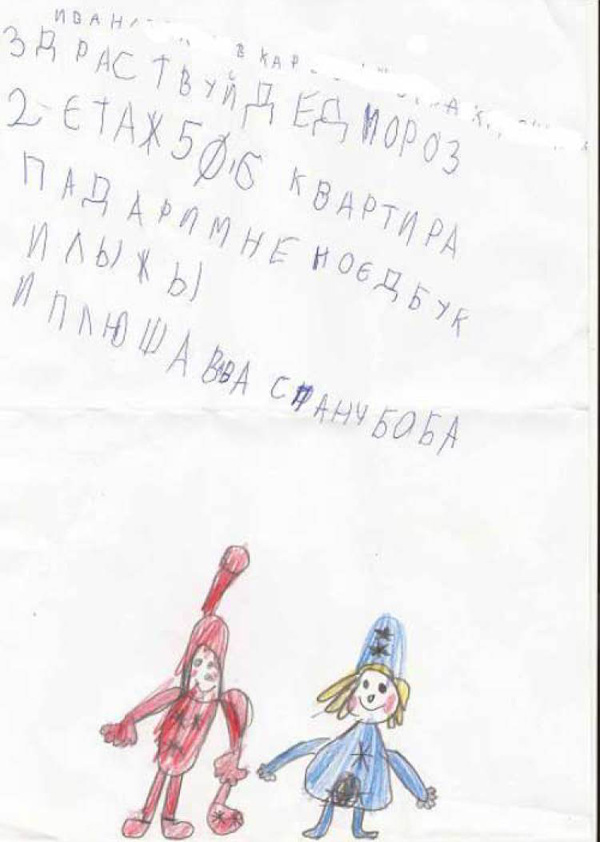 ЗДРАСТВУЙ ДЕД МОРОЗ
2-ЄТАЖ 50,5 КВАРТИРА
ПАДАРИ МНЕ НОЄДБУК
И ЛЫЖЫ
И ПЛЮШАВВА СПАНЧБОБА